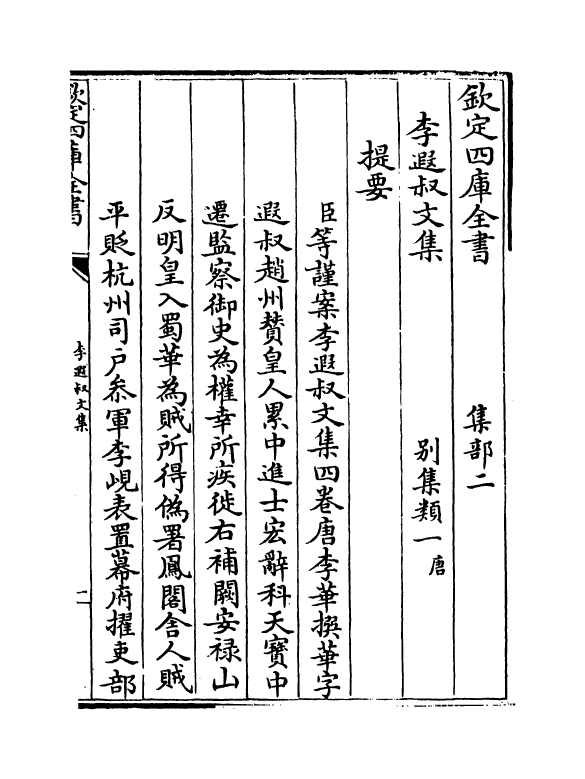 欽定四庫全書　集部二
李遐叔文集　別集類一唐
提要
臣等謹案李遐叔文集四卷唐李華撰華字
遐叔趙州贊皇人累中進士宏辭科天寶中
遷監察御史為權幸所疾徙右補闕安祿山
反明皇入蜀華為賊所得偽署鳳閣舍人賊
平貶杭州司户叅軍李峴表置幕府擢吏部
欽定四庫全書
李遐叔文集
一